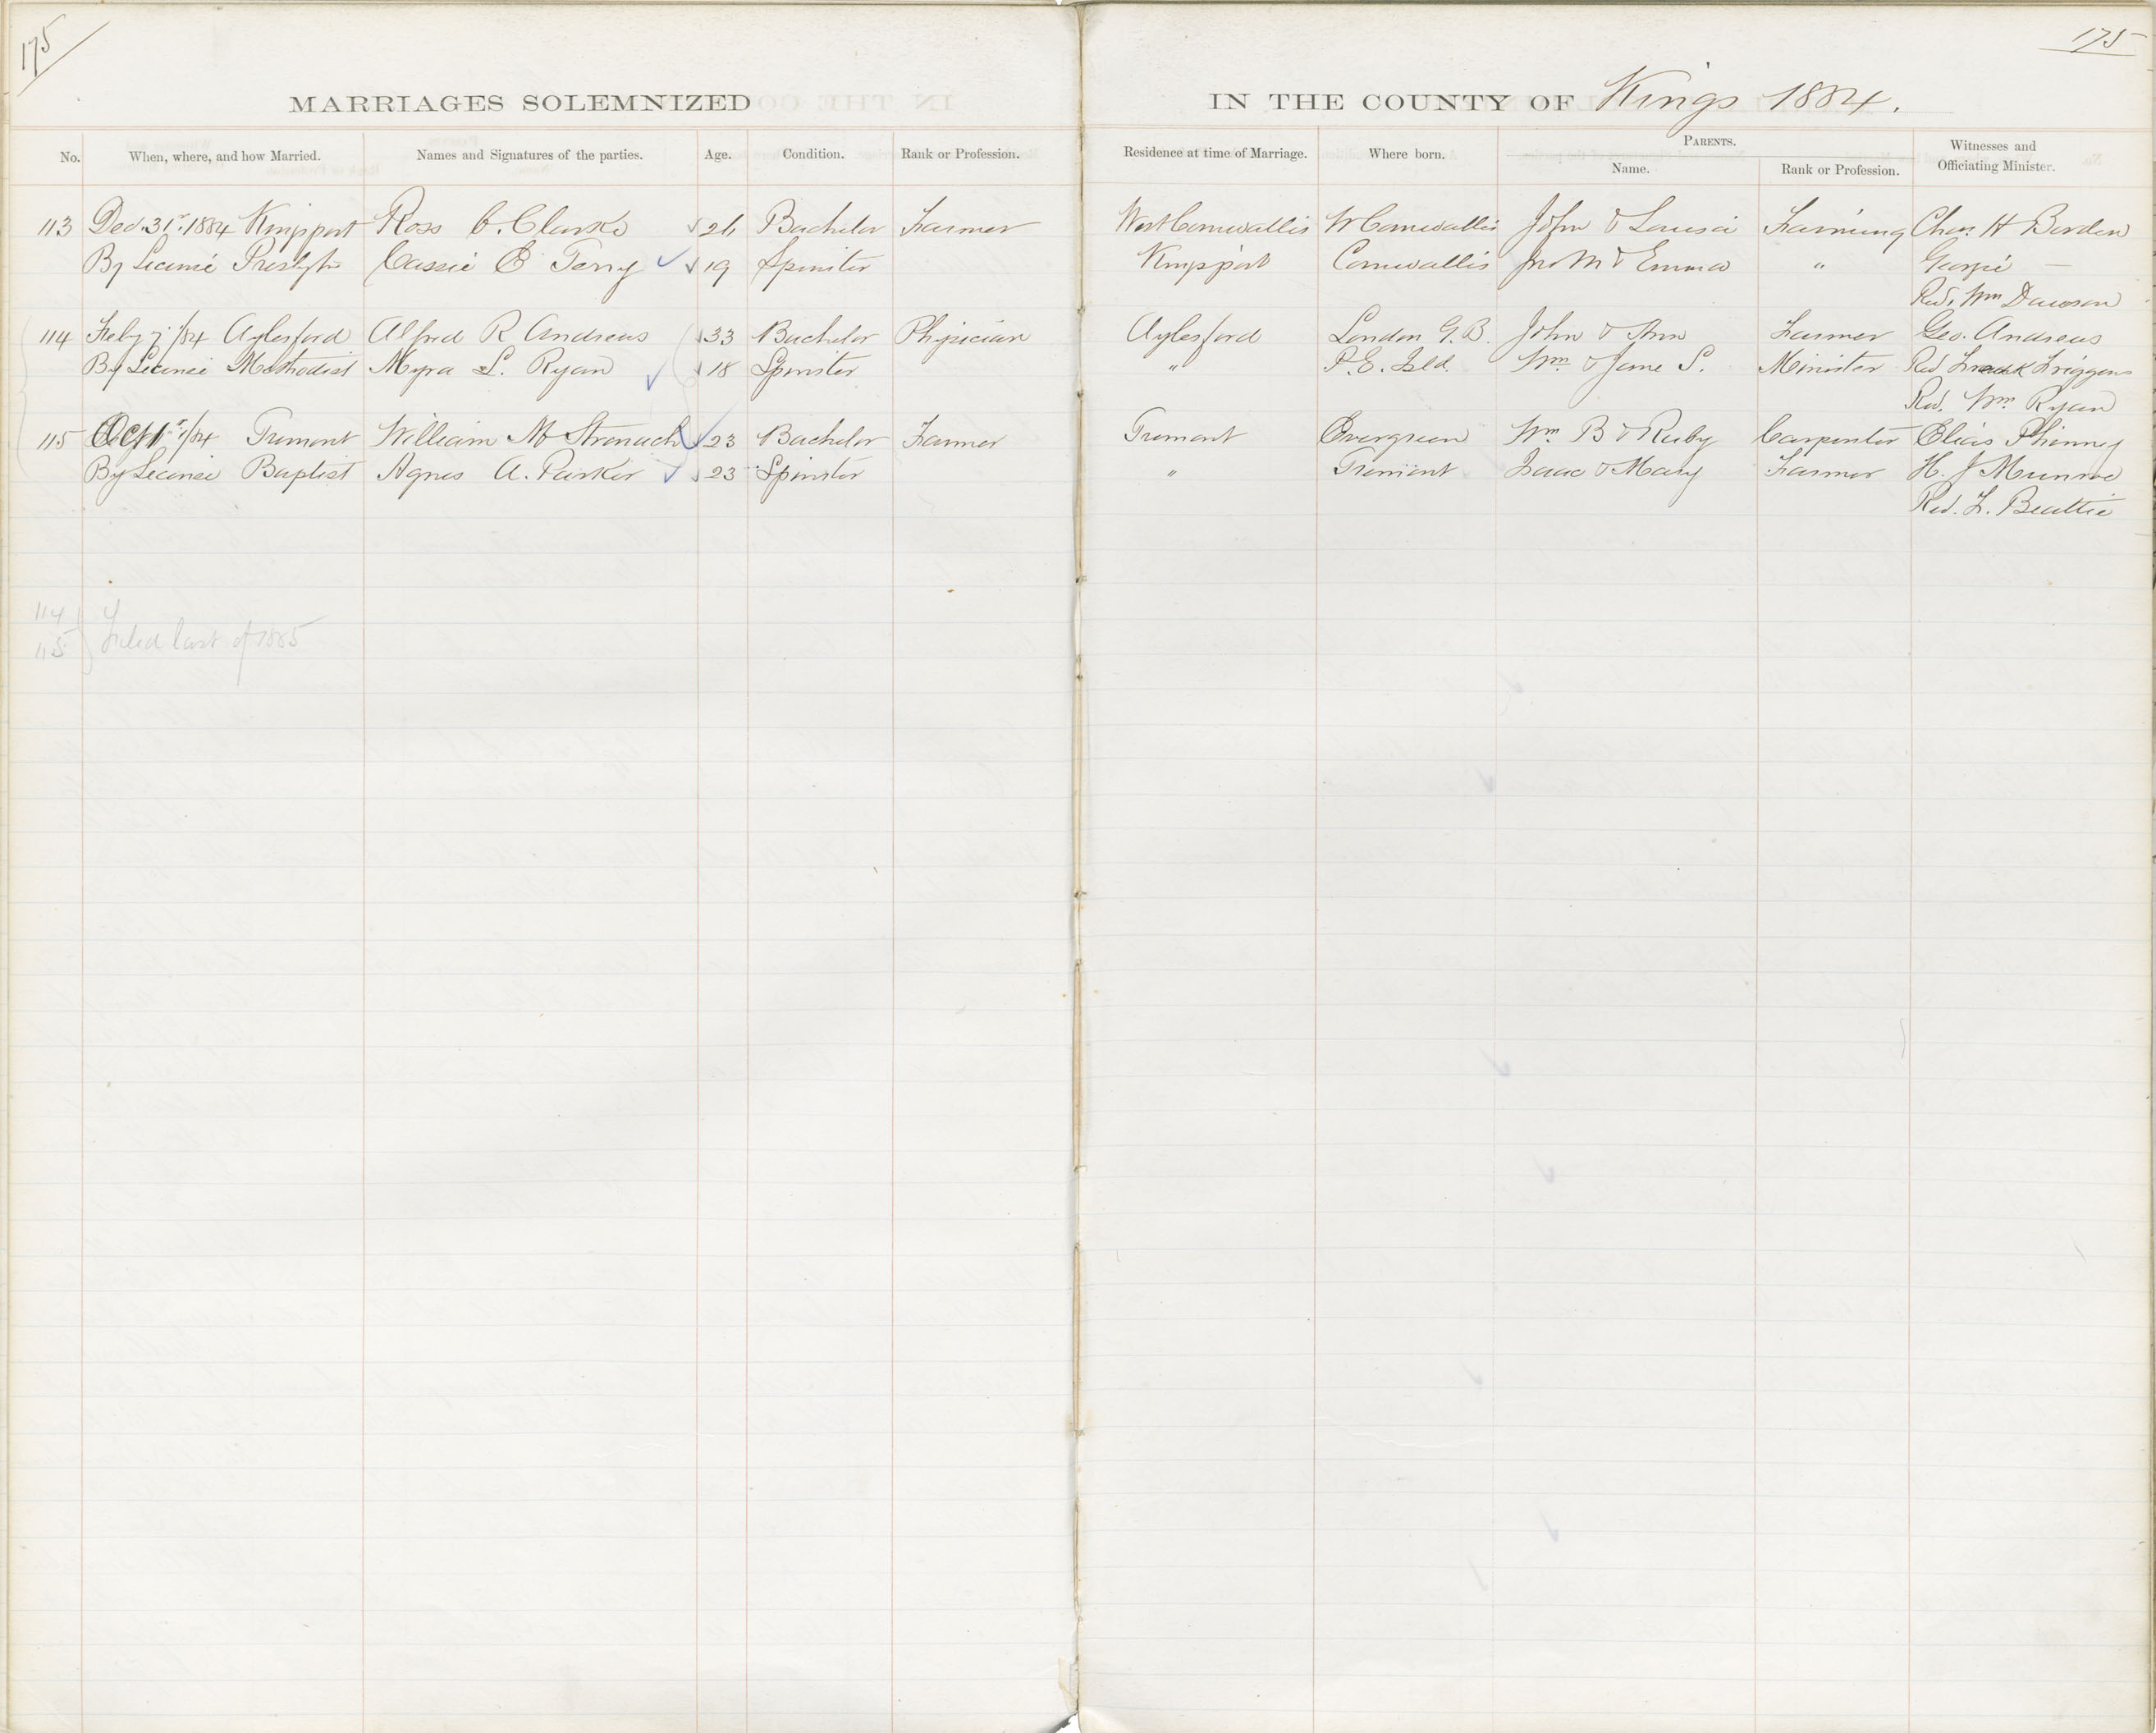 175
175
MARRIAGES SOLEMNIZED IN THE COUNTY OF Kings 1884.
No. When, where, and how Married. Names and Signatures of the parties. Age. Condition. Rank or Profession. Residence at time of Marriage. Where born. PARENTS. Name. Rank or Profession. Witnesses and Officiating Minister.
113 Dec. 31st 1884 Kingsport Ross C. Clarke 26 Bachelor Farmer West Cornwallis W Cornwallis John & Louisa Farming Chas. H Borden
By License Presbytn Cassie E Terry 19 Spinster Kingsport Cornwallis Jno M & Emma " Georgie —
Rev. Wm Dawson
114 Feby 7 /84 Aylesford Alfred R Andrews 33 Bachelor Physician Aylesford London G.B. John & Ann Farmer Geo. Andrews
By License Methodist Myra L. Ryan 18 Spinster " P.E. Isld. Wm & Jane S. Minister Rev Frank Friggens
Rev. Wm Ryan
115 Oct 1st /84 Tremont William M Stronach 23 Bachelor Farmer Tremont Evergreen Wm B & Ruby Carpenter Elias Phinney
By License Baptist Agnes A. Parker 23 Spinster " Tremont Isaac & Mary Farmer H. J Munroe
Rev. F. Beattie
114
115 } Filed last of 1885